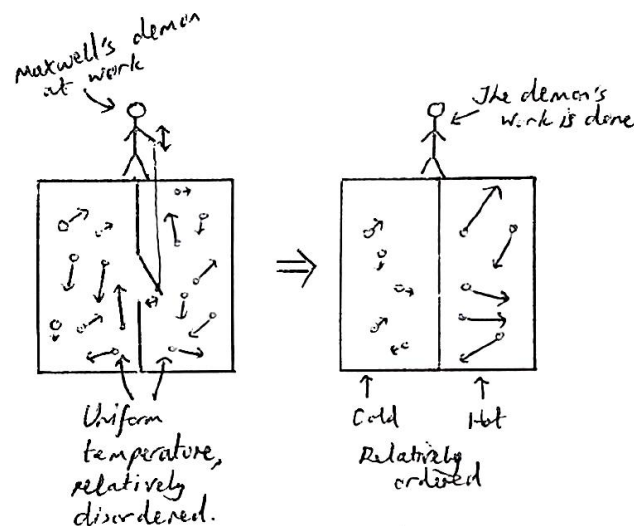 Maxwell's demon
at work
The demon's
work is done
Uniform
temperature,
relatively
disordered.
Cold
Hot
Relatively
ordered